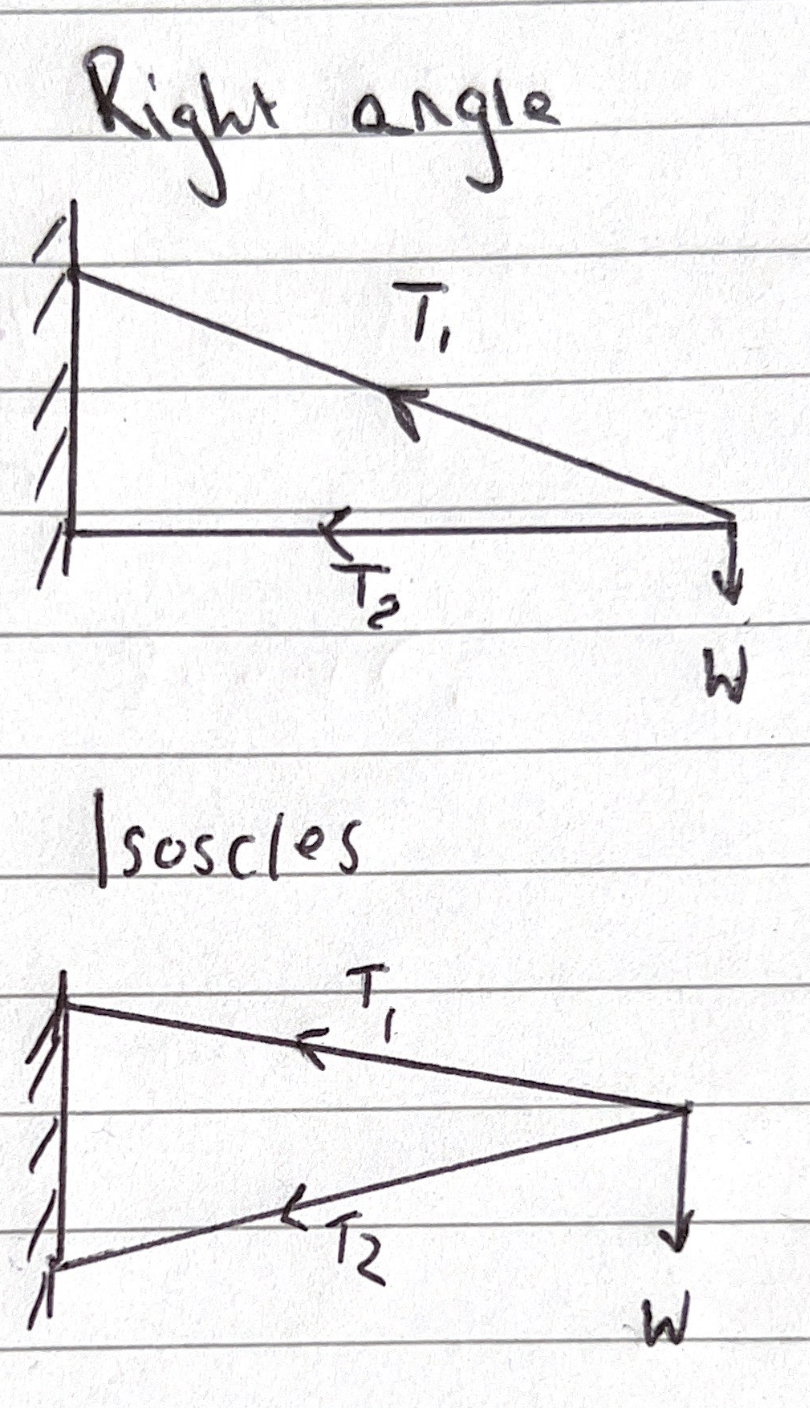 Right angle
T₁
T₂
W
Isoscles
T₁
T2
W